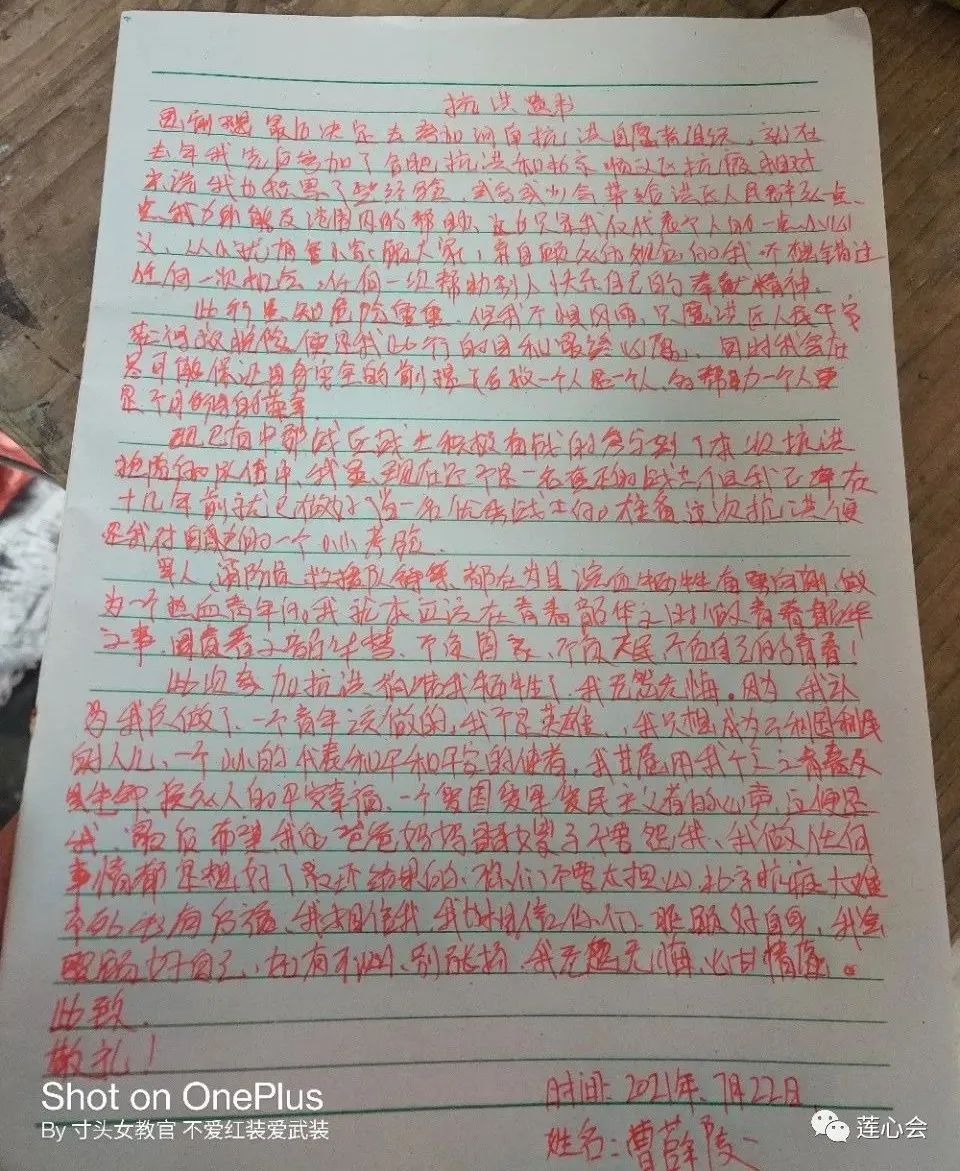 抗洪题书
思前想 最后决定去参加河南抗洪自愿者组织、就在
去年我先后参加了合肥抗洪和北京顺义区抗疫 相对
来说我也积累了些经验 或多或少会带给洪区人民群众一点
点我力所能及范围内的帮助、这也只是我仅代表个人的一点小心
义、从小就有舍小家顾大家 的我 不想错过
任何一次机会、任何一次帮助别人快乐自己的奉献精神、
此行虽知危险重重、但我不惧风雨、只愿洪区人民平安
便是我此行的目和最终心愿、同时我会在
尽可能保证自身安全的前提下后救一个人是一个人、多帮助一个人更
是 的荣幸
现已有中部战区战士积极有战的参与到了本次抗洪
的队伍中、我虽现在还不是一名真正的战士但我已
十几年前就已做好当一名优秀战士的准备这次抗洪便
是我对自己的一个小小考验、
军人、消防员 救援队等等 都在为
为一个热血青年的我 本应该在青春韶华之时做青春韶华
之事、 不负国家、不负人民 不负自己的青春!
此次参加抗洪 我牺牲了、我无怨无悔。因为 我认
为我只做了、一个青年该做的、我不是英雄、我只想成为 利国利民
的人儿、一个小小的代表和平和平安的使者、我甘愿用我 青春
换众人的平安幸福、一个爱国爱军爱民主义者的心声、这便是
我、最后希望我的爸爸妈妈 妻子不要怨我、我做任何
事情都是想好了最坏结果的、你们不要太担心、北京抗疫大难
不死必有后福、我相信我、我也相信你们、照顾好自身、我会
照顾好自己、如有不测、别张扬、我无怨无悔、心甘情愿。
此致、
敬礼!
时间:2021年、7月22日
姓名:曹
Shot on OnePlus
By 寸头女教官 不爱红装爱武装
莲心会